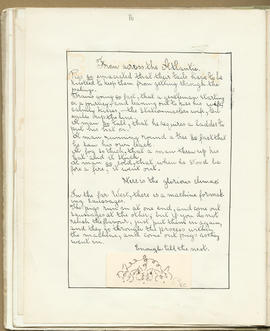 From across the Atlantic.
Pigs so emaciated that their tails have to be
knotted to keep them from getting through the
palings.
Trains going so fast, that a gentleman starting
on a journey and leaning out to kiss his wife
actually kisses, — the stationmasters wife, ten
miles up the line.
A man so tall, that he requires a ladder to
put his hat on.
A man running round a tree so fast that
he saw his own back.
A fog so thick, that a man threw up his
hat and it stuck.
A man so cold, that when he stood be
fore a fire, it went out.
Here is the glorious climax
In the far West, there is a machine for mak
ing sausages.
The pigs run in at one end, and come out
sausages at the other; but if you do not
relish the flavour, just put them in again,
and they go through the process within
the machine, and come out pigs as they
went in.
Enough till the next.